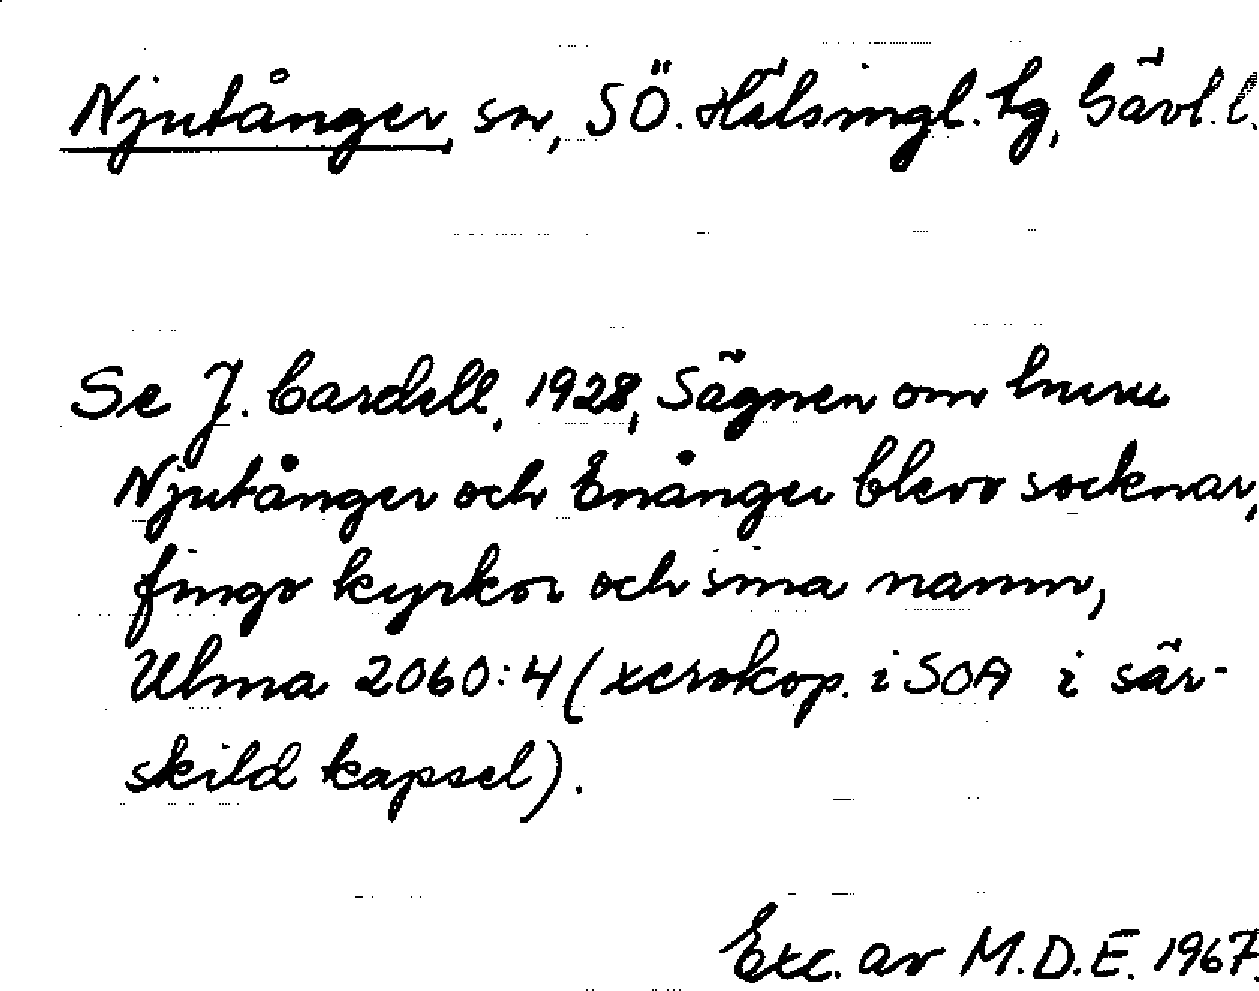 Njutånger, sn, SÖ. Hälsingl. tg, Gävl. l.
Se J. Cardell, 1928, Sägnen om huru
Njutånger och Enånger blevo socknar,
fingo kyrkor och sina namn,
Ulma 2060:4 (xerokop. i SOA i sär-
skild kapsel).
Exc. av M.D.E. 1967.